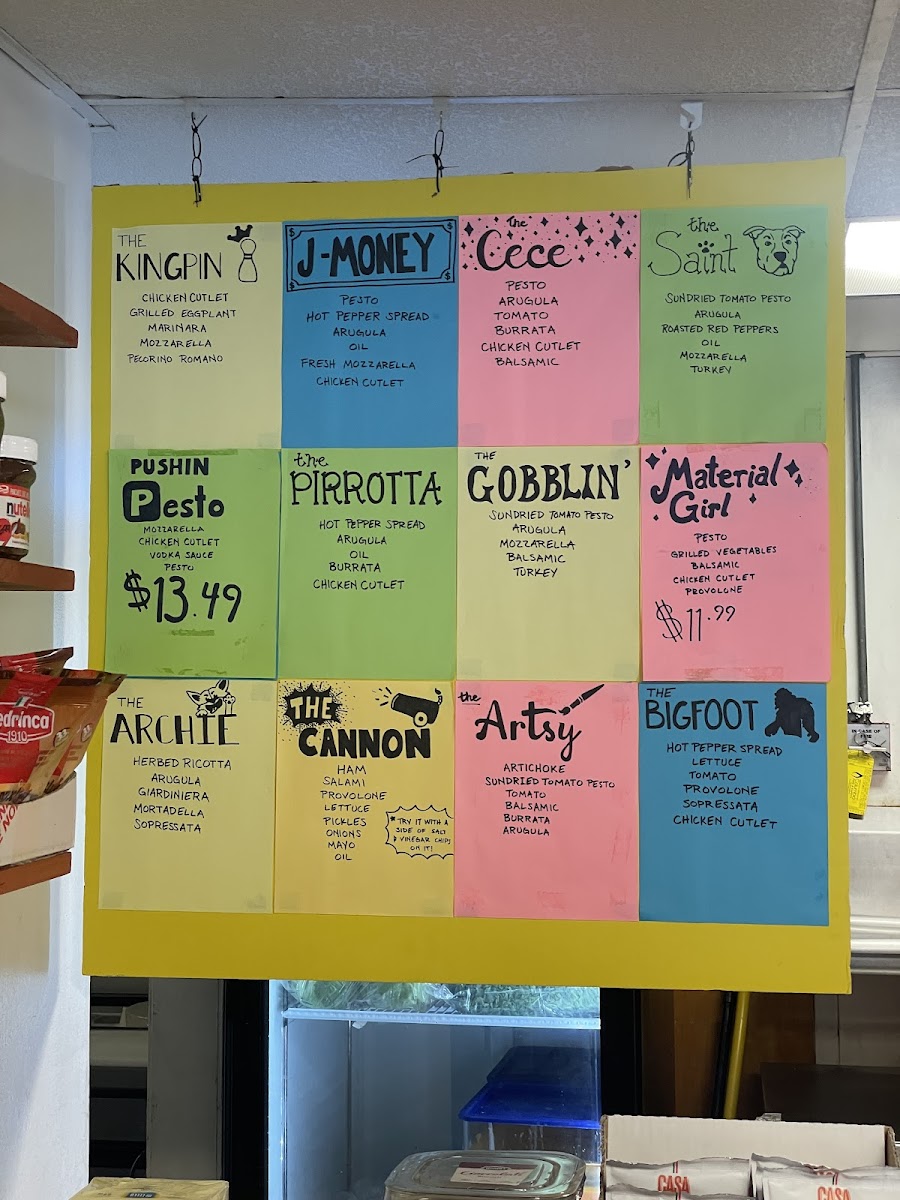 THE
KINGPIN
CHICKEN CUTLET
GRILLED EGGPLANT
MARINARA
MOZZARELLA
PECORINO ROMANO
J-MONEY
PESTO
HOT PEPPER SPREAD
ARUGULA
OIL
FRESH MOZZARELLA
CHICKEN CUTLET
the
Cece
PESTO
ARUGULA
TOMATO
BURRATA
CHICKEN CUTLET
BALSAMIC
the
Saint
SUNDRIED TOMATO PESTO
ARUGULA
ROASTED RED PEPPERS
OIL
MOZZARELLA
TURKEY
PUSHIN
Pesto
MOZZARELLA
CHICKEN CUTLET
VODKA SAUCE
PESTO
$13.49
the
PIRROTTA
HOT PEPPER SPREAD
ARUGULA
OIL
BURRATA
CHICKEN CUTLET
THE
GOBBLIN'
SUNDRIED TOMATO PESTO
ARUGULA
MOZZARELLA
BALSAMIC
TURKEY
Material
Girl
PESTO
GRILLED VEGETABLES
BALSAMIC
CHICKEN CUTLET
PROVOLONE
$11.99
THE
ARCHIE
HERBED RICOTTA
ARUGULA
GIARDINIERA
MORTADELLA
SOPRESSATA
THE
CANNON
HAM
SALAMI
PROVOLONE
LETTUCE
PICKLES
ONIONS
MAYO
OIL
* TRY IT WITH A
SIDE OF SALT
& VINEGAR CHIPS
ON IT!
the
Artsy
ARTICHOKE
SUNDRIED TOMATO PESTO
TOMATO
BALSAMIC
BURRATA
ARUGULA
THE
BIGFOOT
HOT PEPPER SPREAD
LETTUCE
TOMATO
PROVOLONE
SOPRESSATA
CHICKEN CUTLET
nutel
edrinca
1910
IN CASE OF
FIRE
CASA
CASA